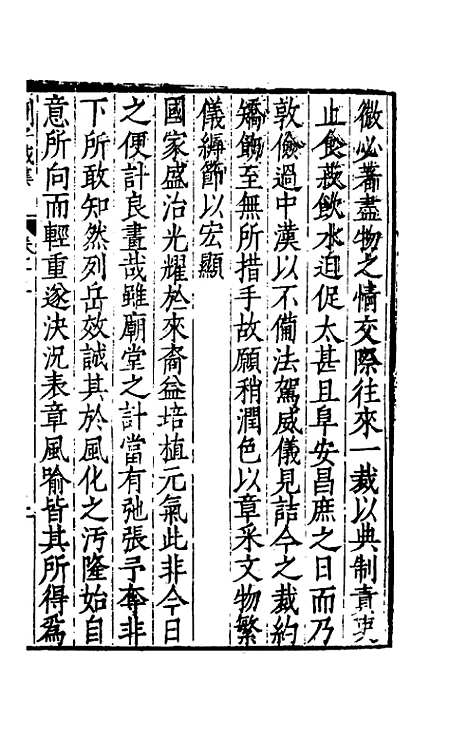 微必著盡物之情交際往來一裁以典制責
止食蔬飲水迫促太甚且阜安昌庶之日而乃
敦儉過中漢以不備法駕威儀見詰今之裁約
矯飾至無所措手故願稍潤色以章采文物繁
儀縟節以宏顯
國家盛治光耀於來裔益培植元氣此非今日
之便計良畫哉雖廟堂之計當有弛張予奪非
下所敢知然列岳效誠其於風化之汚隆始自
意所向而輕重遂決況表章風喻皆其所得爲